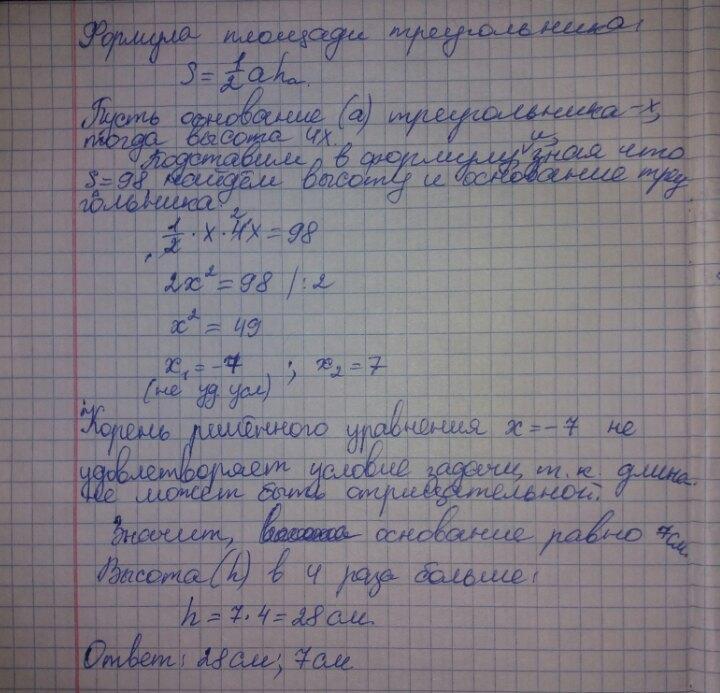 Формула площади треугольника:
S = 1/2 ah_a.
Пусть основание (a) треугольника - x,
тогда высота 4x.
Подставим в формулу и, зная что
S = 98, найдём высоту и основание треу
гольника.
1/2 · x · 4x = 98
2x² = 98 /:2
x² = 49
x₁ = -7 ; x₂ = 7
(не уд. усл)
Корень решённого уравнения x = -7 не
удовлетворяет условие задачи, т. к. длина
не может быть отрицательной.
Значит, основание равно 7см.
Высота (h) в 4 раза больше:
h = 7·4 = 28 см.
Ответ: 28 см; 7 см